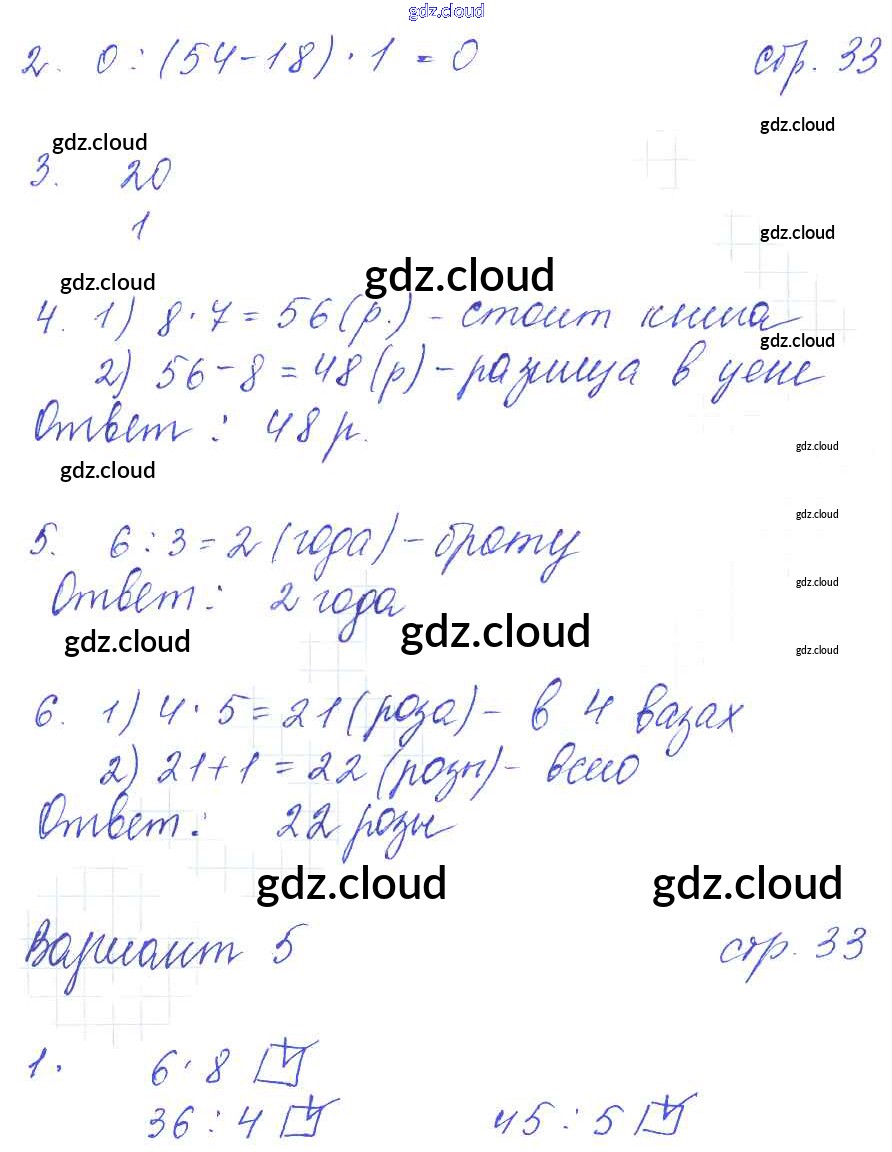 gdz.cloud
2. 0 : (54 - 18) · 1 = 0 стр. 33
gdz.cloud
gdz.cloud
3. 20
1
gdz.cloud
gdz.cloud gdz.cloud
4. 1) 8 · 7 = 56 (р.) - стоит книга
gdz.cloud
2) 56 - 8 = 48 (р) - разница в цене
Ответ : 48 р.
gdz.cloud
gdz.cloud
gdz.cloud
5. 6 : 3 = 2 (года) - брату
gdz.cloud
Ответ : 2 года
gdz.cloud gdz.cloud
gdz.cloud
6. 1) 4 · 5 = 21 (роза) - в 4 вазах
2) 21 + 1 = 22 (розы) - всего
Ответ : 22 розы
gdz.cloud gdz.cloud
Вариант 5 стр. 33
1. 6 · 8 ☑
36 : 4 ☑ 45 : 5 ☑